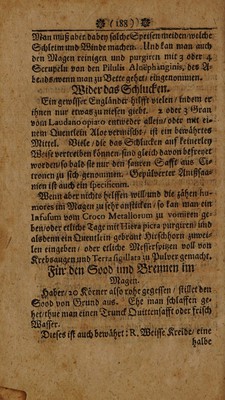 (188)
Man muß aber dabey solche Speisen meiden/welche
Schleim und Winde machen. Und kan man auch
den Magen reinigen und purgiren mit 3 oder 4
Scrupeln von den Pilulis Aloëphanginis, des A-
bends/wenn man zu Bette gehet/ eingenommen.
Wider das Schlucken.
Ein gewisser Engländer hilfft vielen/ indem er
ihnen nur etwas zu niesen giebt. 2 oder 3 Gran
vom Laudano opiato entweder allein/ oder mit ei-
nem Quentlein Aloe vermischt/ ist ein bewährtes
Mittel. Viele/ die das Schlucken auf keinerley
Weise vertreiben können/ sind gleich davon befreyet
worden/ so bald sie nur den sauren Safft aus Ci-
tronen zu sich genommen. Gepülverter Anißsaa-
men ist auch ein specificum.
Wenn aber nichts helffen will und die zähen hu-
mores im Magen zu sehr anstecken/ so kan man ein
Infusum vom Croco Metallorum zu vomiren ge-
ben/ oder etliche Tage mit Hiera picra purgiren/ und
alsdenn ein Quentlein gebrant Hirschhorn zuwei-
len eingeben/ oder etliche Messerspitzen voll von
Krebsaugen und Terra sigillata zu Pulver gemacht.
Für den Sood und Brennen im
Magen.
Haber/ 20 Körner also rohe gegessen/ stillet den
Sood von Grund aus. Ehe man schlaffen ge-
het/ thue man einen Trunck Quittensafft oder frisch
Wasser.
Dieses ist auch bewährt: R. Weisse Kreide/ eine
halbe